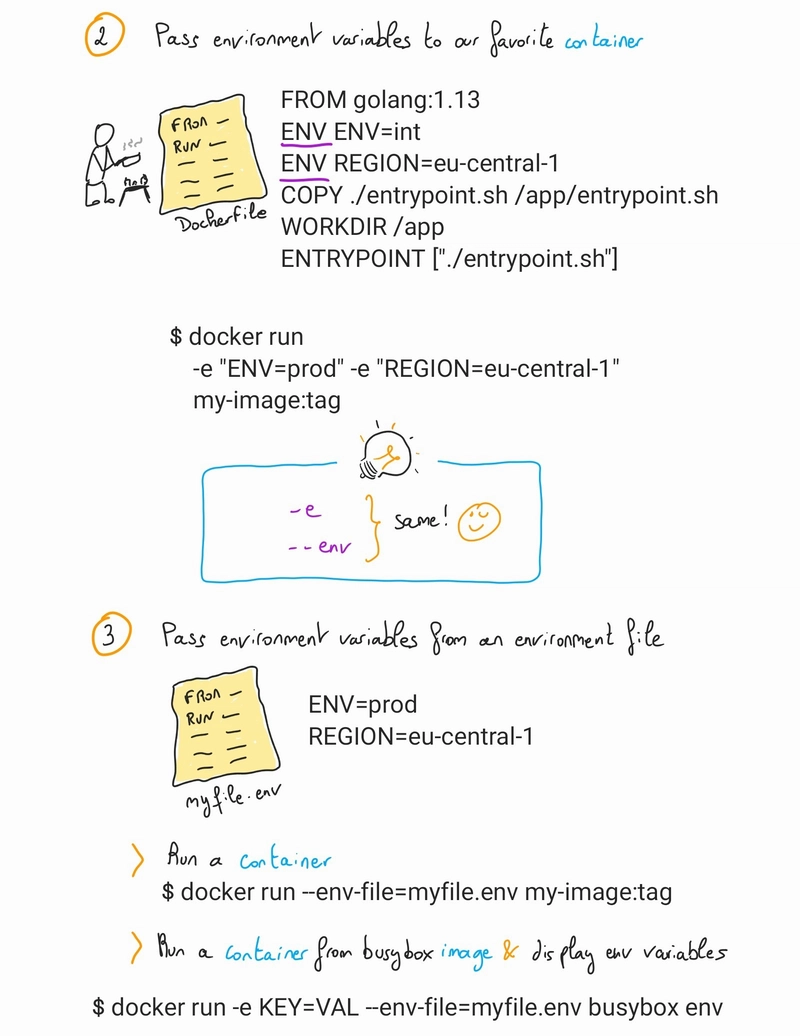 2 Pass environment variables to our favorite container
FROM -
RUN -
Dockerfile
FROM golang:1.13
ENV ENV=int
ENV REGION=eu-central-1
COPY ./entrypoint.sh /app/entrypoint.sh
WORKDIR /app
ENTRYPOINT ["./entrypoint.sh"]
$ docker run
-e "ENV=prod" -e "REGION=eu-central-1"
my-image:tag
-e
--env
same!
3 Pass environment variables from an environment file
FROM -
RUN -
myfile.env
ENV=prod
REGION=eu-central-1
Run a container
$ docker run --env-file=myfile.env my-image:tag
Run a container from busybox image & display env variables
$ docker run -e KEY=VAL --env-file=myfile.env busybox env